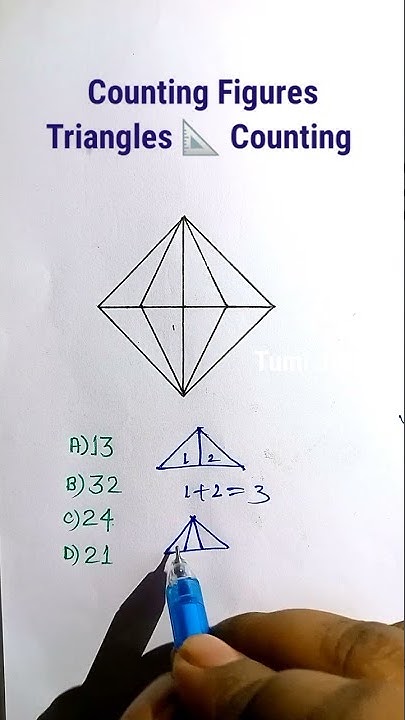 Counting Figures
Triangles 📐 Counting
1
A)13
B)32
C)24
D)21
1 2
1+2=3